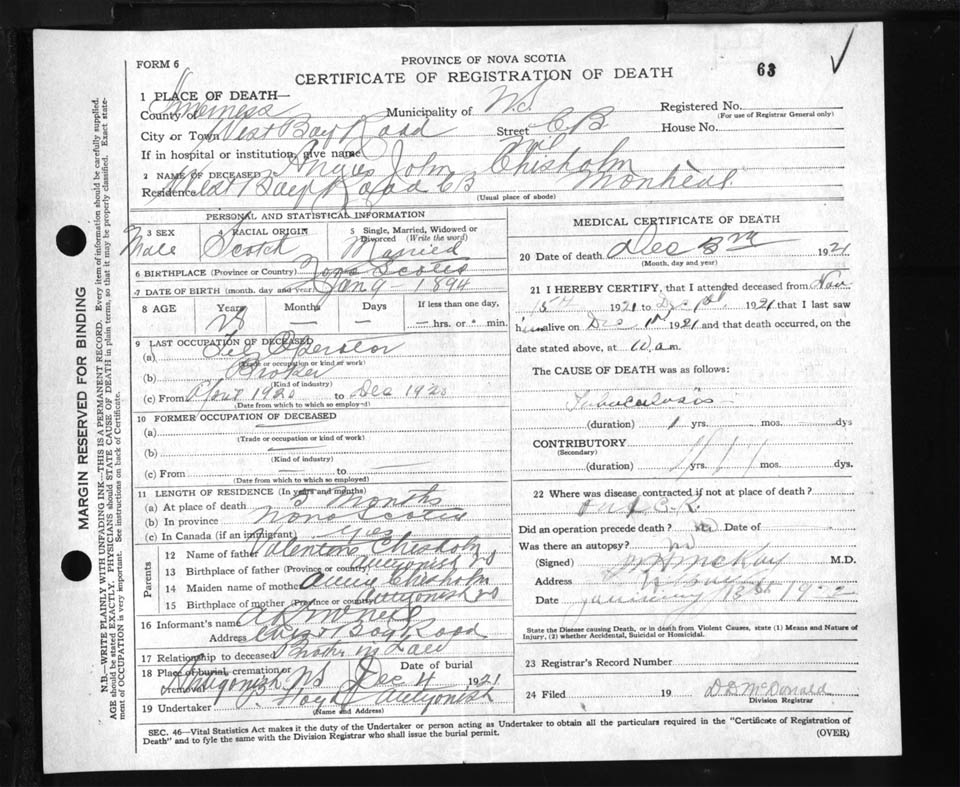 FORM 6
PROVINCE OF NOVA SCOTIA
CERTIFICATE OF REGISTRATION OF DEATH
63
1 PLACE OF DEATH—
County of Inverness Municipality of N.S. Registered No.
(For use of Registrar General only)
City or Town West Bay Road Street C B House No.
If in hospital or institution, give name
2 NAME OF DECEASED Angus John Chisholm
Residence West Bay Road CB Montreal
(Usual place of abode)
PERSONAL AND STATISTICAL INFORMATION
3 SEX Male
4 RACIAL ORIGIN Scotch
5 Single, Married, Widowed or Divorced (Write the word) Married
6 BIRTHPLACE (Province or Country) Nova Scotia
7 DATE OF BIRTH (month, day and year) Jany 9 - 1894
8 AGE Years 28 Months — Days — If less than one day, — hrs. or • min.
9 LAST OCCUPATION OF DECEASED
(a) Tel Operator
(Trade or occupation or kind of work)
(b) Broker
(Kind of industry)
(c) From 1920 to Dec 1920
(Date from which to which so employed)
10 FORMER OCCUPATION OF DECEASED
(a)
(Trade or occupation or kind of work)
(b) —
(Kind of industry)
(c) From — to —
(Date from which to which so employed)
11 LENGTH OF RESIDENCE (In years and months)
(a) At place of death 5 Months
(b) In province Nova Scotia
(c) In Canada (if an immigrant) yes
Parents
12 Name of father Valentine Chisholm
13 Birthplace of father (Province or country) Antigonish NS
14 Maiden name of mother Annie Chisholm
15 Birthplace of mother (Province or country) Antigonish NS
16 Informant's name
Address West Bay Road
17 Relationship to deceased Brother in Law
18 Place of burial, cremation or removal Antigonish NS Date of burial Dec 4 1921
19 Undertaker Antigonish
(Name and Address)
MEDICAL CERTIFICATE OF DEATH
20 Date of death Dec 3rd 1921
(Month, day and year)
21 I HEREBY CERTIFY, that I attended deceased from Nov
15th 1921 to Dec 1st 1921 that I last saw
him alive on Dec 1st 1921 and that death occurred, on the
date stated above, at 10 a.m.
The CAUSE OF DEATH was as follows:
Tuberculosis
(duration) 1 yrs. mos. dys
CONTRIBUTORY
(Secondary)
(duration) yrs. mos. dys.
22 Where was disease contracted if not at place of death?
Did an operation precede death? no Date of
Was there an autopsy? no
(Signed) McKay M.D.
Address
Date January 1922
State the Disease causing Death, or in death from Violent Causes, state (1) Means and Nature of
Injury, (2) whether Accidental, Suicidal or Homicidal.
23 Registrar's Record Number
24 Filed 19 D D McDonald
Division Registrar
SEC. 46—Vital Statistics Act makes it the duty of the Undertaker or person acting as Undertaker to obtain all the particulars required in the "Certificate of Registration of
Death" and to fyle the same with the Division Registrar who shall issue the burial permit. (OVER)
MARGIN RESERVED FOR BINDING
N.B.—WRITE PLAINLY WITH UNFADING INK—THIS IS A PERMANENT RECORD. Every item of information should be carefully supplied.
AGE should be stated EXACTLY. PHYSICIANS should STATE CAUSE OF DEATH in plain terms, so that it may be properly classified. Exact state-
ment of OCCUPATION is very important. See instructions on back of Certificate.